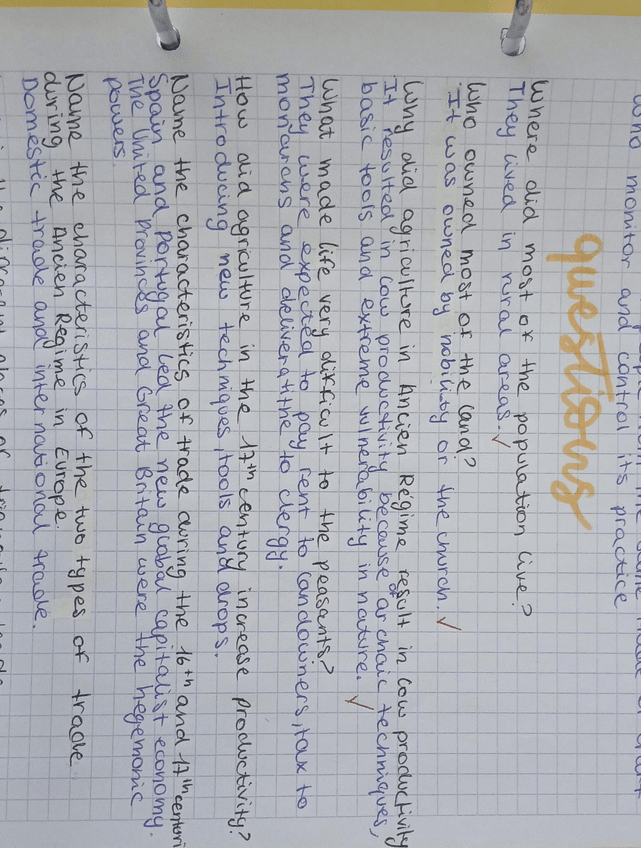 monitor and control its practice
questions
Where did most of the population live?
They lived in rural areas. ✓
Who owned most of the land?
It was owned by nobility or the church. ✓
Why did agriculture in Ancien Régime result in low productivity
It resulted in low productivity because of archaic techniques,
basic tools and extreme vulnerability in nature. ✓
What made life very difficult to the peasants?
They were expected to pay rent to landowners, tax to
monarchs and deliver a tithe to clergy.
How did agriculture in the 17th century increase productivity?
Introducing new techniques, tools and crops.
Name the characteristics of trade during the 16th and 17th centuri
Spain and Portugal led the new global capitalist economy.
The United Provinces and Great Britain were the hegemonic
powers.
Name the characteristics of the two types of trade
during the Ancien Regime in Europe.
Domestic trade and international trade.